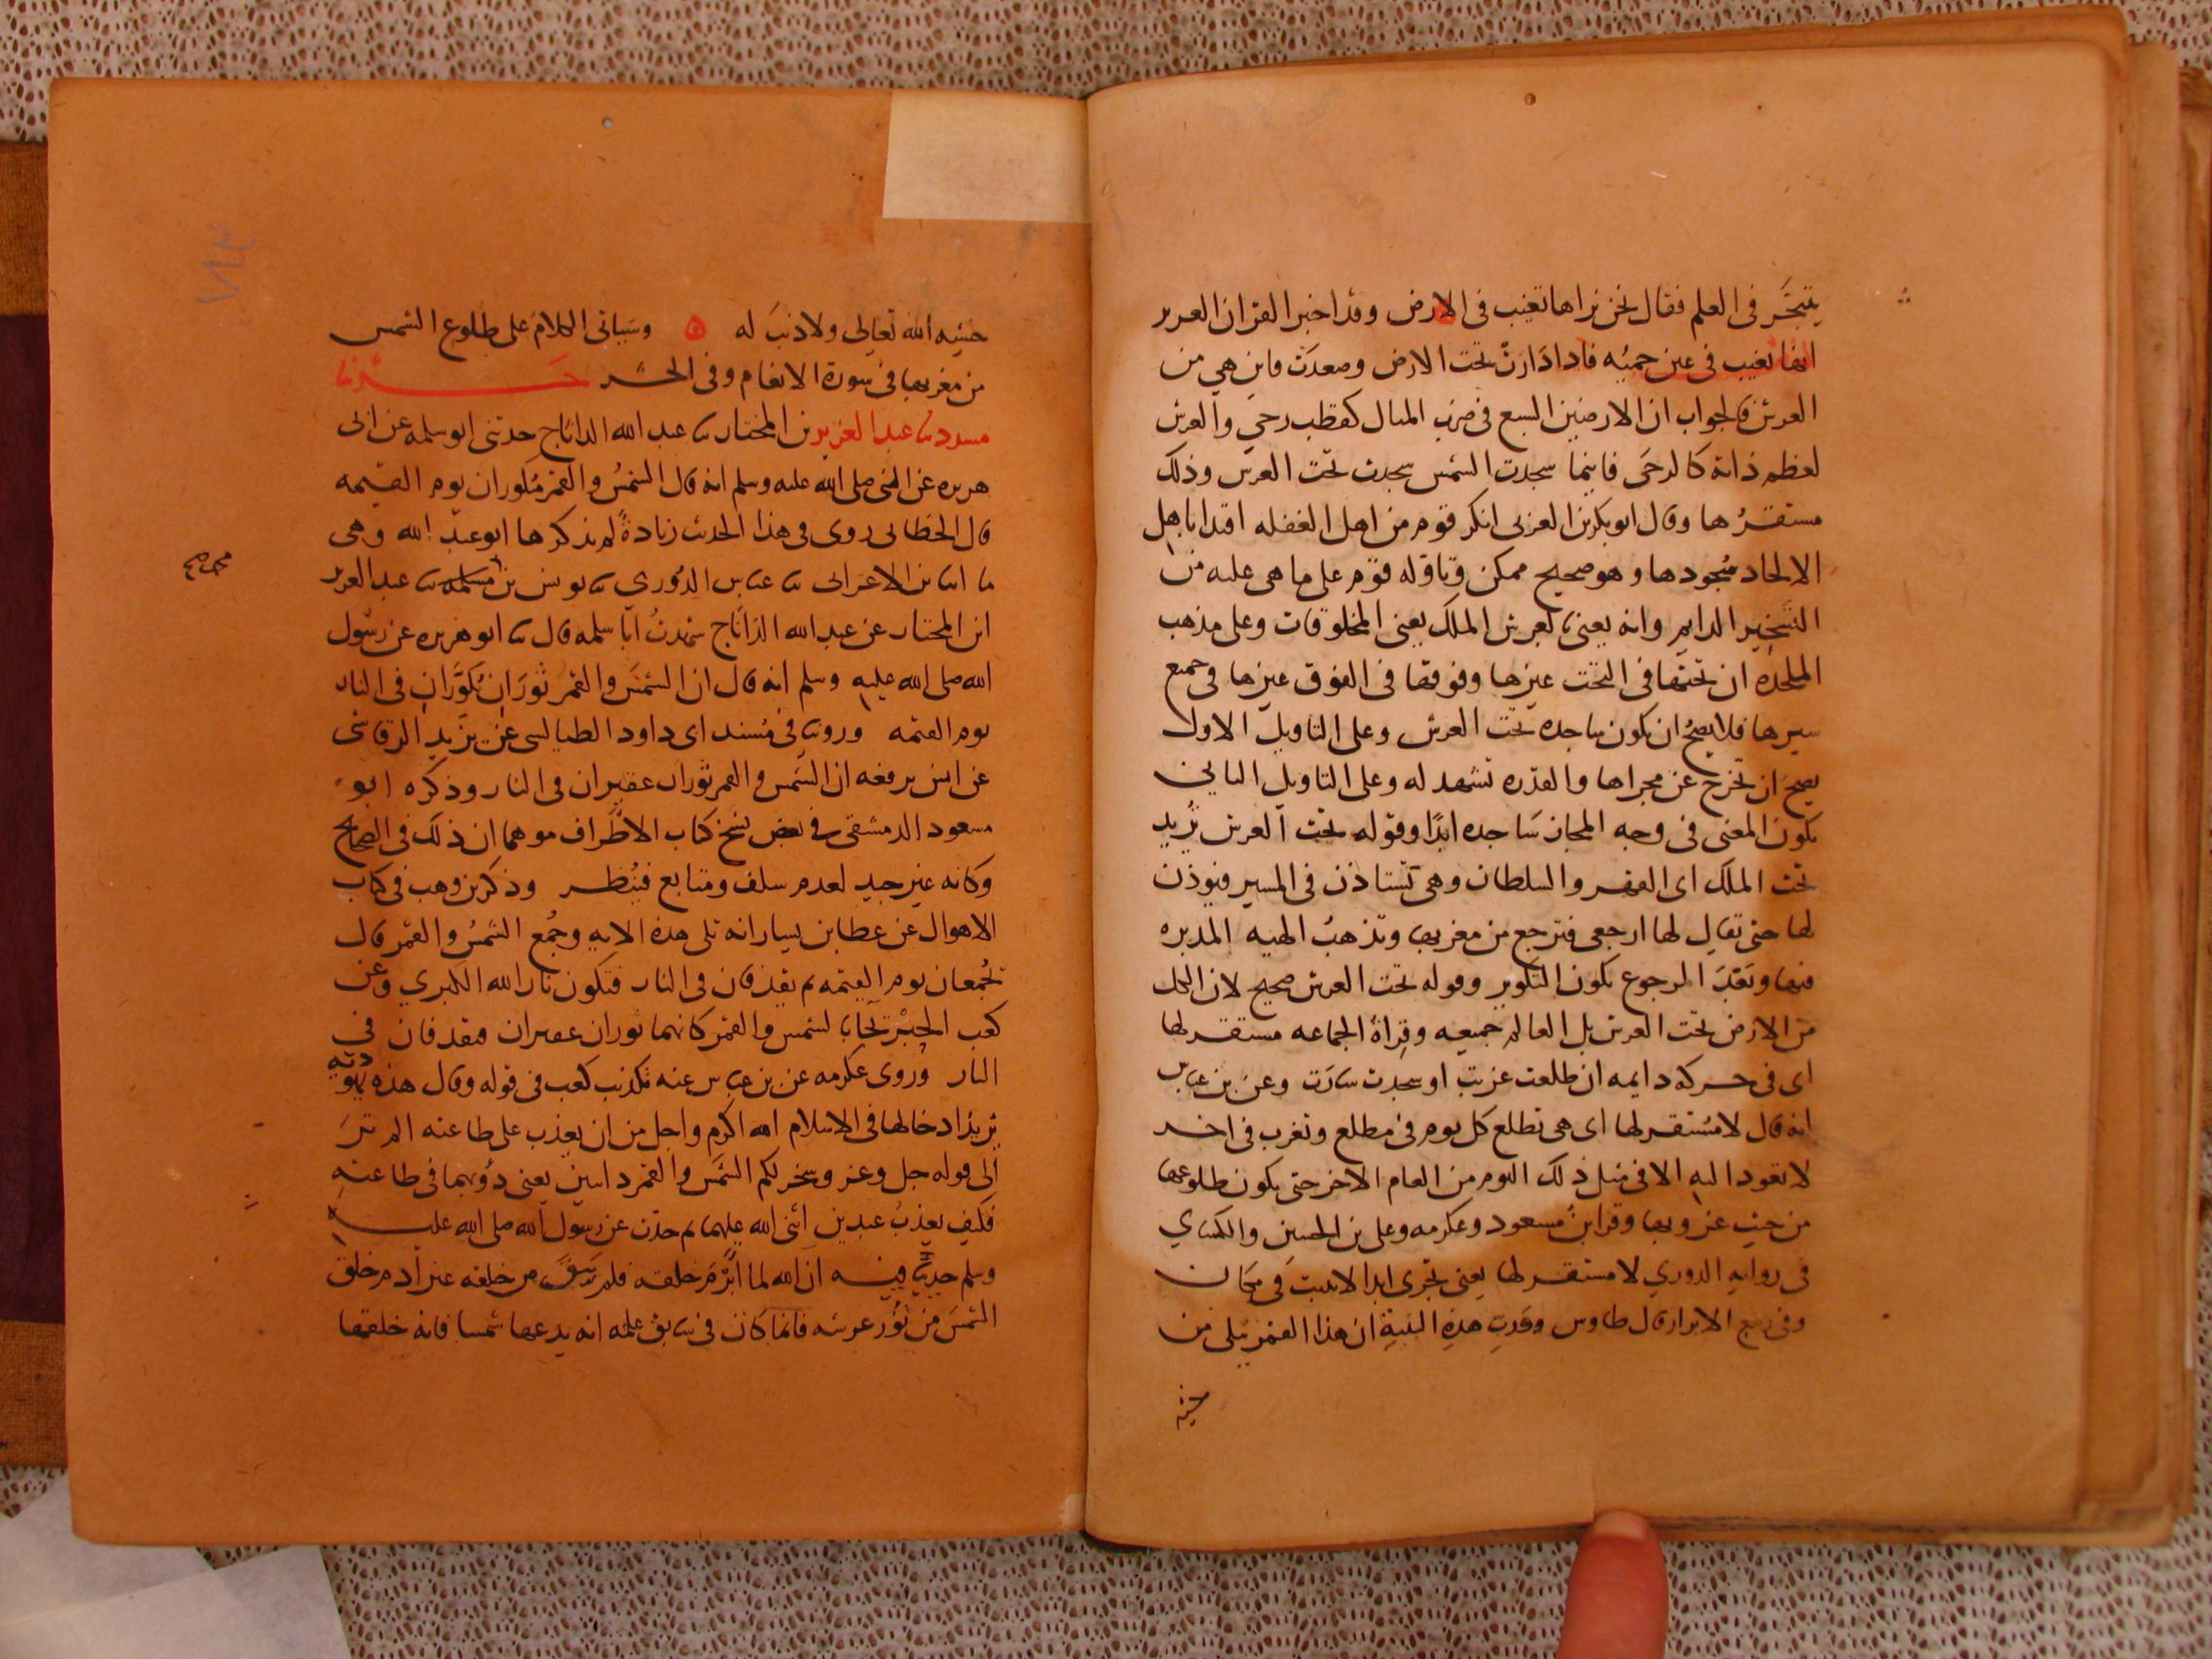 يتبحَّر في العلم فقال نحن نراها تغيب في الارض وقد اخبر القران العزيز
انها تغيب في عين حمئه فاذا دارت تحت الارض وصعدت فاين هي من
العرش فالجواب ان الارضين السبع في ضرب المثال كقطب رحى والعرش
لعظم ذاته كالرحى فاينما سجدت الشمس سجدت تحت العرش وذلك
مستقرُها وقال ابو بكر بن العربي انكر قوم من اهل الغفله اقتدا باهل
الالحاد سُجودها وهو صحيح ممكن وتاوله قوم على ما هي عليه من
التسخير الدايم وانه يعني بالعرش الملك يعني المخلوقات وعلى مذهب
الملحده ان تحتها في التحت غيرها وفوقها في الفوق غيرها في جميع
سيرها فلا يصحُ ان يكون ساجده تحت العرش وعلى التاويل الاول
يصح ان تخرج عن مجراها والقدره تشهد له وعلى التاويل الثاني
يكون المعنى في وجه المجاز سَاجده ابدًا وقوله تحت العرش يُريد
تحت الملك اى القهر والسلطان وهي تستاذن في المسير فيوذن
لها حتى يقال لها ارجعي فترجع من مغربها وتذهبُ الهيه المدبره
فيها وبَعْدَ الرجوع يكون التكوير وقوله تحت العرش صحيح لان الكل
من الارض تحت العرش بل العالم جميعه وقراة الجماعه مستقر لها
اى في حركه دايمه ان طلعت غربت او سجدت سارت وعن بن عباس
انه قال لا مُستقر لها اى هي تطلع كل يوم في مطلع وتغرب في اخر
لا تعود اليه الا في مثل ذلك اليوم من العام الاخر حتى يكون طلوعها
من حيث غروبها وقرا ابنُ مسعود وعكرمه وعلي بن الحسين والكساي
في روايه الدوري لا مستقر لها يعني تجرى ابدا لا تثبت في مكان
وفي ربيع الابرار قال طاوس وَرَبِّ هذِه البَنِيةِ ان هذا القمر يبكي من
خشيه
حشيه الله تعالى ولا ذنبَ له ه وسَياتي الكلام على طلوع الشمس
من مغربها في سورة الانعام وفي الحشر حَدثنا
مسدد ثنا عبد العزيز بن المختار ثنا عبد الله الداناج حدثني ابو سلمه عن ابي
هريره عن النبي صلى الله عليه وسلم انه قال الشمسُ والقمر مُكوران يوم القيمه
قال الخطابي روى في هذا الحديث زيادةً لم يذكرها ابو عبد الله وهي
ما انبا بن الاعرابي ثنا عباس الدُوري ثنا يونس بن مسلمه ثنا عبد العزيز
محمد صح
ابن المختار عن عبد الله الدَاناج شهدتُ اباسلمه قال ثنا ابو هريره عن رسُول
الله صلى الله عليه وسلم انه قال ان الشمسَ والقمر ثورَان يُكوَّران في النار
يوم القيمه وروينا في مُسند ابى داود الطيالسى عن يزيد الرقاشي
عن انس يرفعه ان الشمس والقمر ثوران عقيران في النار وذكره ابو
مسعود الدمشقى في بعض نسخ كتاب الاطراف موهما ان ذلك في الصحاح
وكانه غير جيد لعدم سلف ومتابع فيُنظر وذكر بن وهب في كتاب
الاهوال عن عطا بن يسار انه تلى هذه الايه وجُمِع الشمسُ والقمر قال
يُجْمعان يوم القيمه ثم يقذفان في النار فتكون نار الله الكبرى وعن
كعب الحِبْر يُجا بالشمس والقمر كانهما ثوران عقيران فيقذفان في
النار ورُوى عكرمه عن بن عباس عنه تكذيب كعب في قوله وقال هذه يهوديه
يريد ادخالها في الاسلام الله اكرم واجل من ان يعذب على طاعته الم ترَ
الى قوله جل وعز وسخر لكم الشمَس والقمر دايبين يعني دؤبهما في طاعته
فكيف يعذبُ عبدين اثنى الله عليهما ثم حدّث عن رسول الله صلى الله عليه
وسلم حديثا فيه ان الله لما ابْرَم خلقه فلم يبق من خلقه غير ادم خلق
الشمسَ من نُوُر عرشه فاما كان في سابق علمه انه يدعها شمسا فانه خلقها